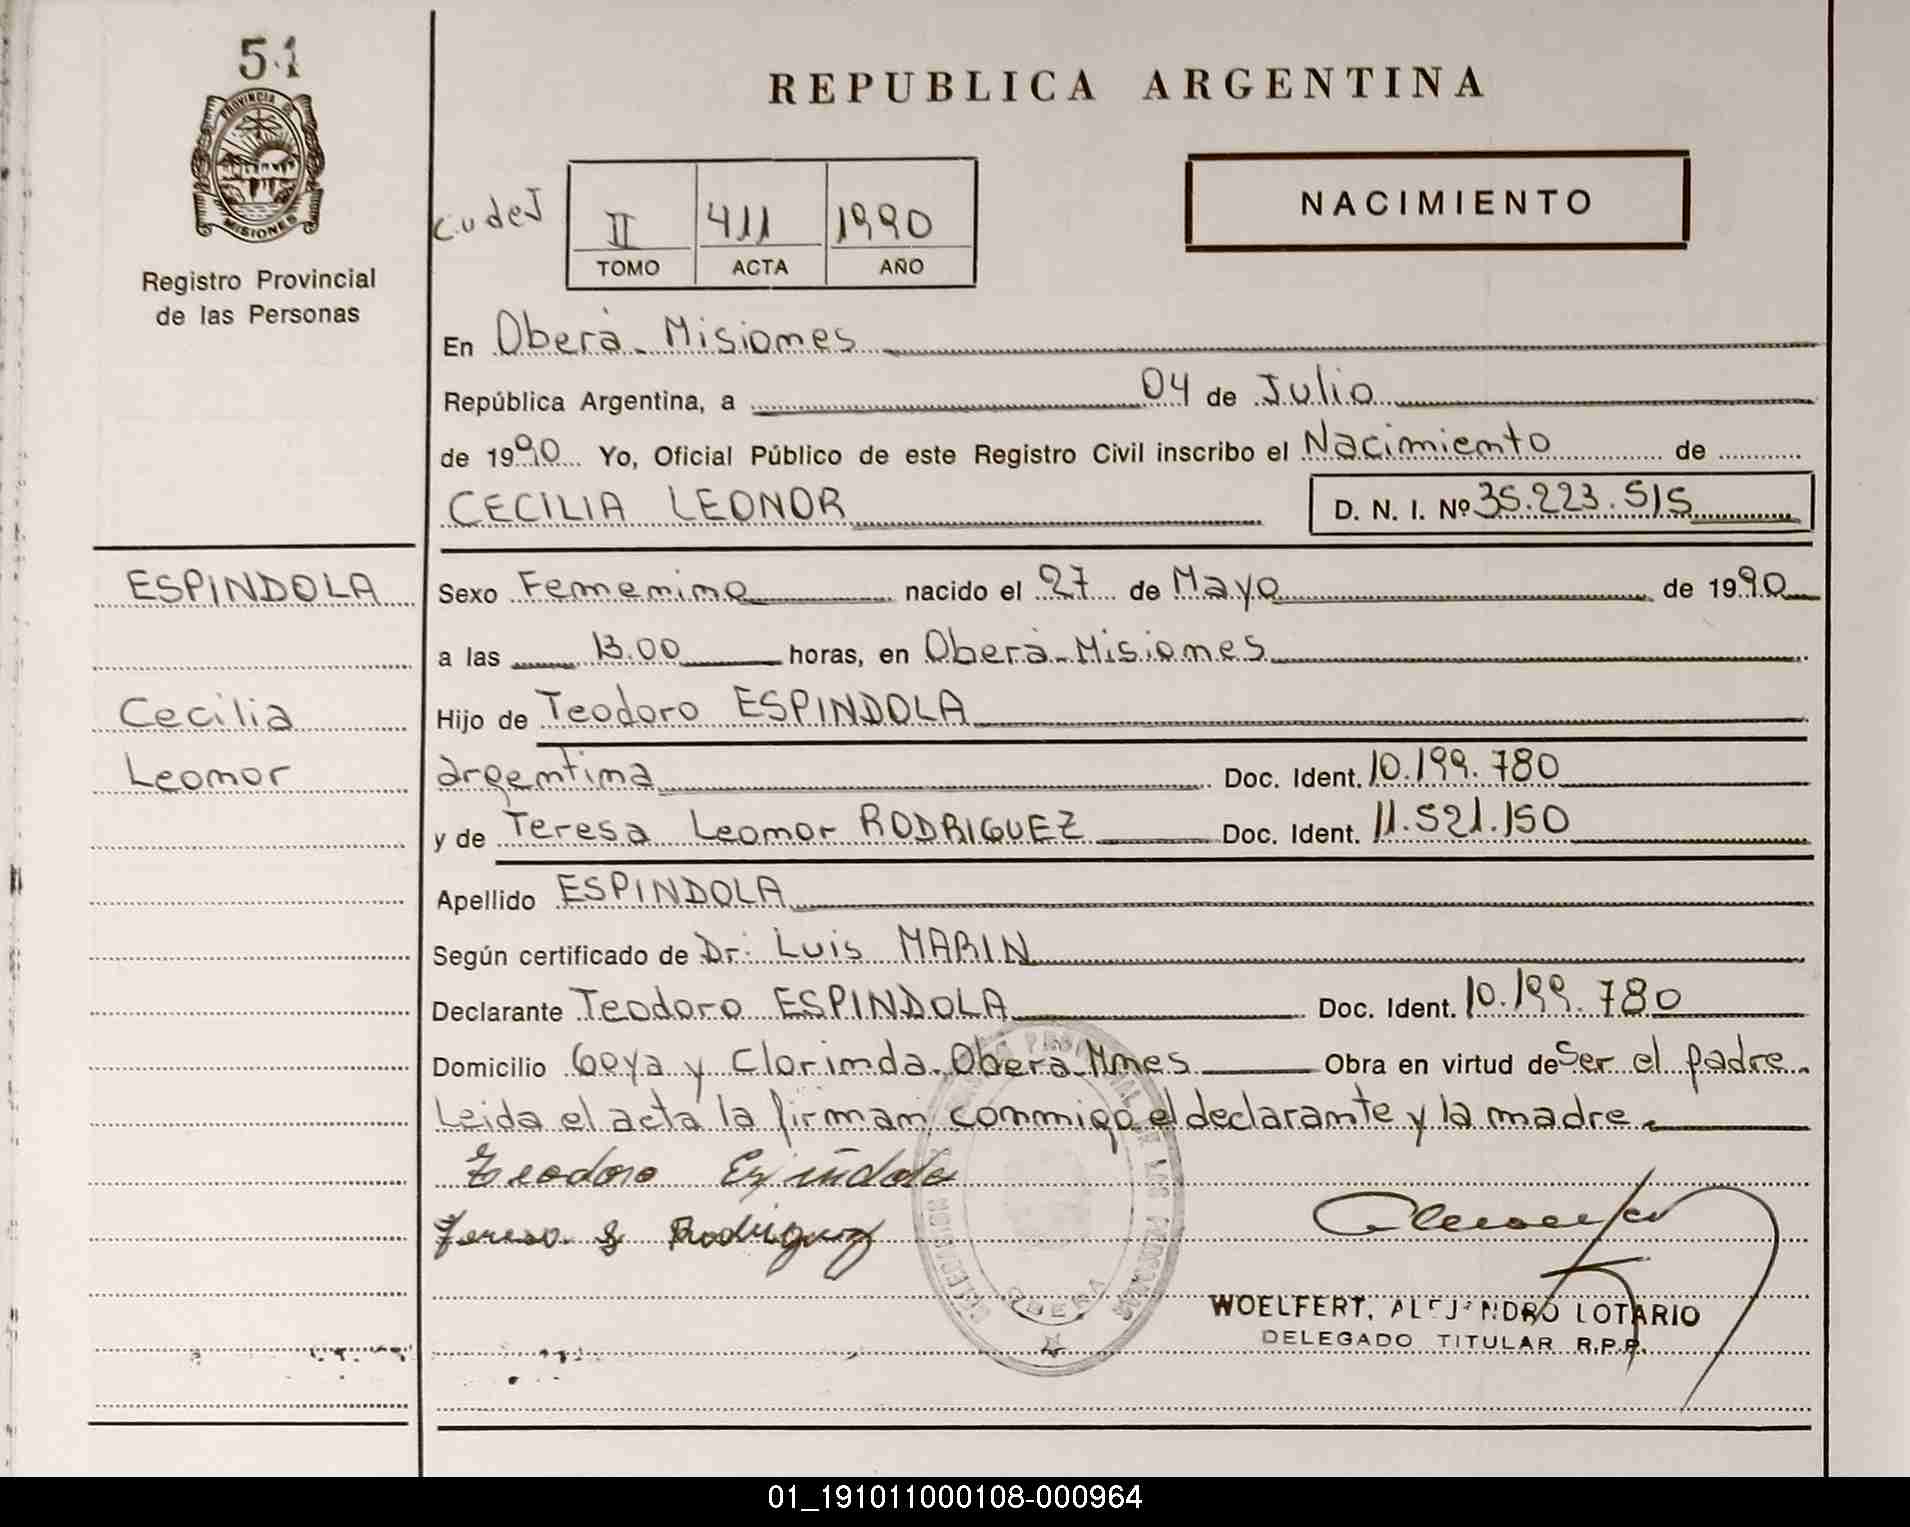 51
PROVINCIA DE
MISIONES
Registro Provincial
de las Personas
REPUBLICA ARGENTINA
NACIMIENTO
II 411 1990
TOMO ACTA AÑO
En Oberá - Misiones
República Argentina, a 04 de Julio
de 1990 Yo, Oficial Público de este Registro Civil inscribo el Nacimiento de
CECILIA LEONOR D. N. I. Nº 35.223.515
ESPINDOLA
Cecilia
Leonor
Sexo Femenino nacido el 27 de Mayo de 1990
a las 13.00 horas, en Oberá - Misiones
Hijo de Teodoro ESPINDOLA
argentina Doc. Ident. 10.199.780
y de Teresa Leonor RODRIGUEZ Doc. Ident. 11.521.150
Apellido ESPINDOLA
Según certificado de Dr. Luis MARIN
Declarante Teodoro ESPINDOLA Doc. Ident. 10.199.780
Domicilio Goya y Clorinda - Oberá - Mnes Obra en virtud de Ser el padre
Leida el acta la firman conmigo el declarante y la madre
Teodoro Espindola
Teresa L Rodriguez
OBERA
WOELFERT, ALEJANDRO LOTARIO
DELEGADO TITULAR R.P.P.
01_191011000108-000964